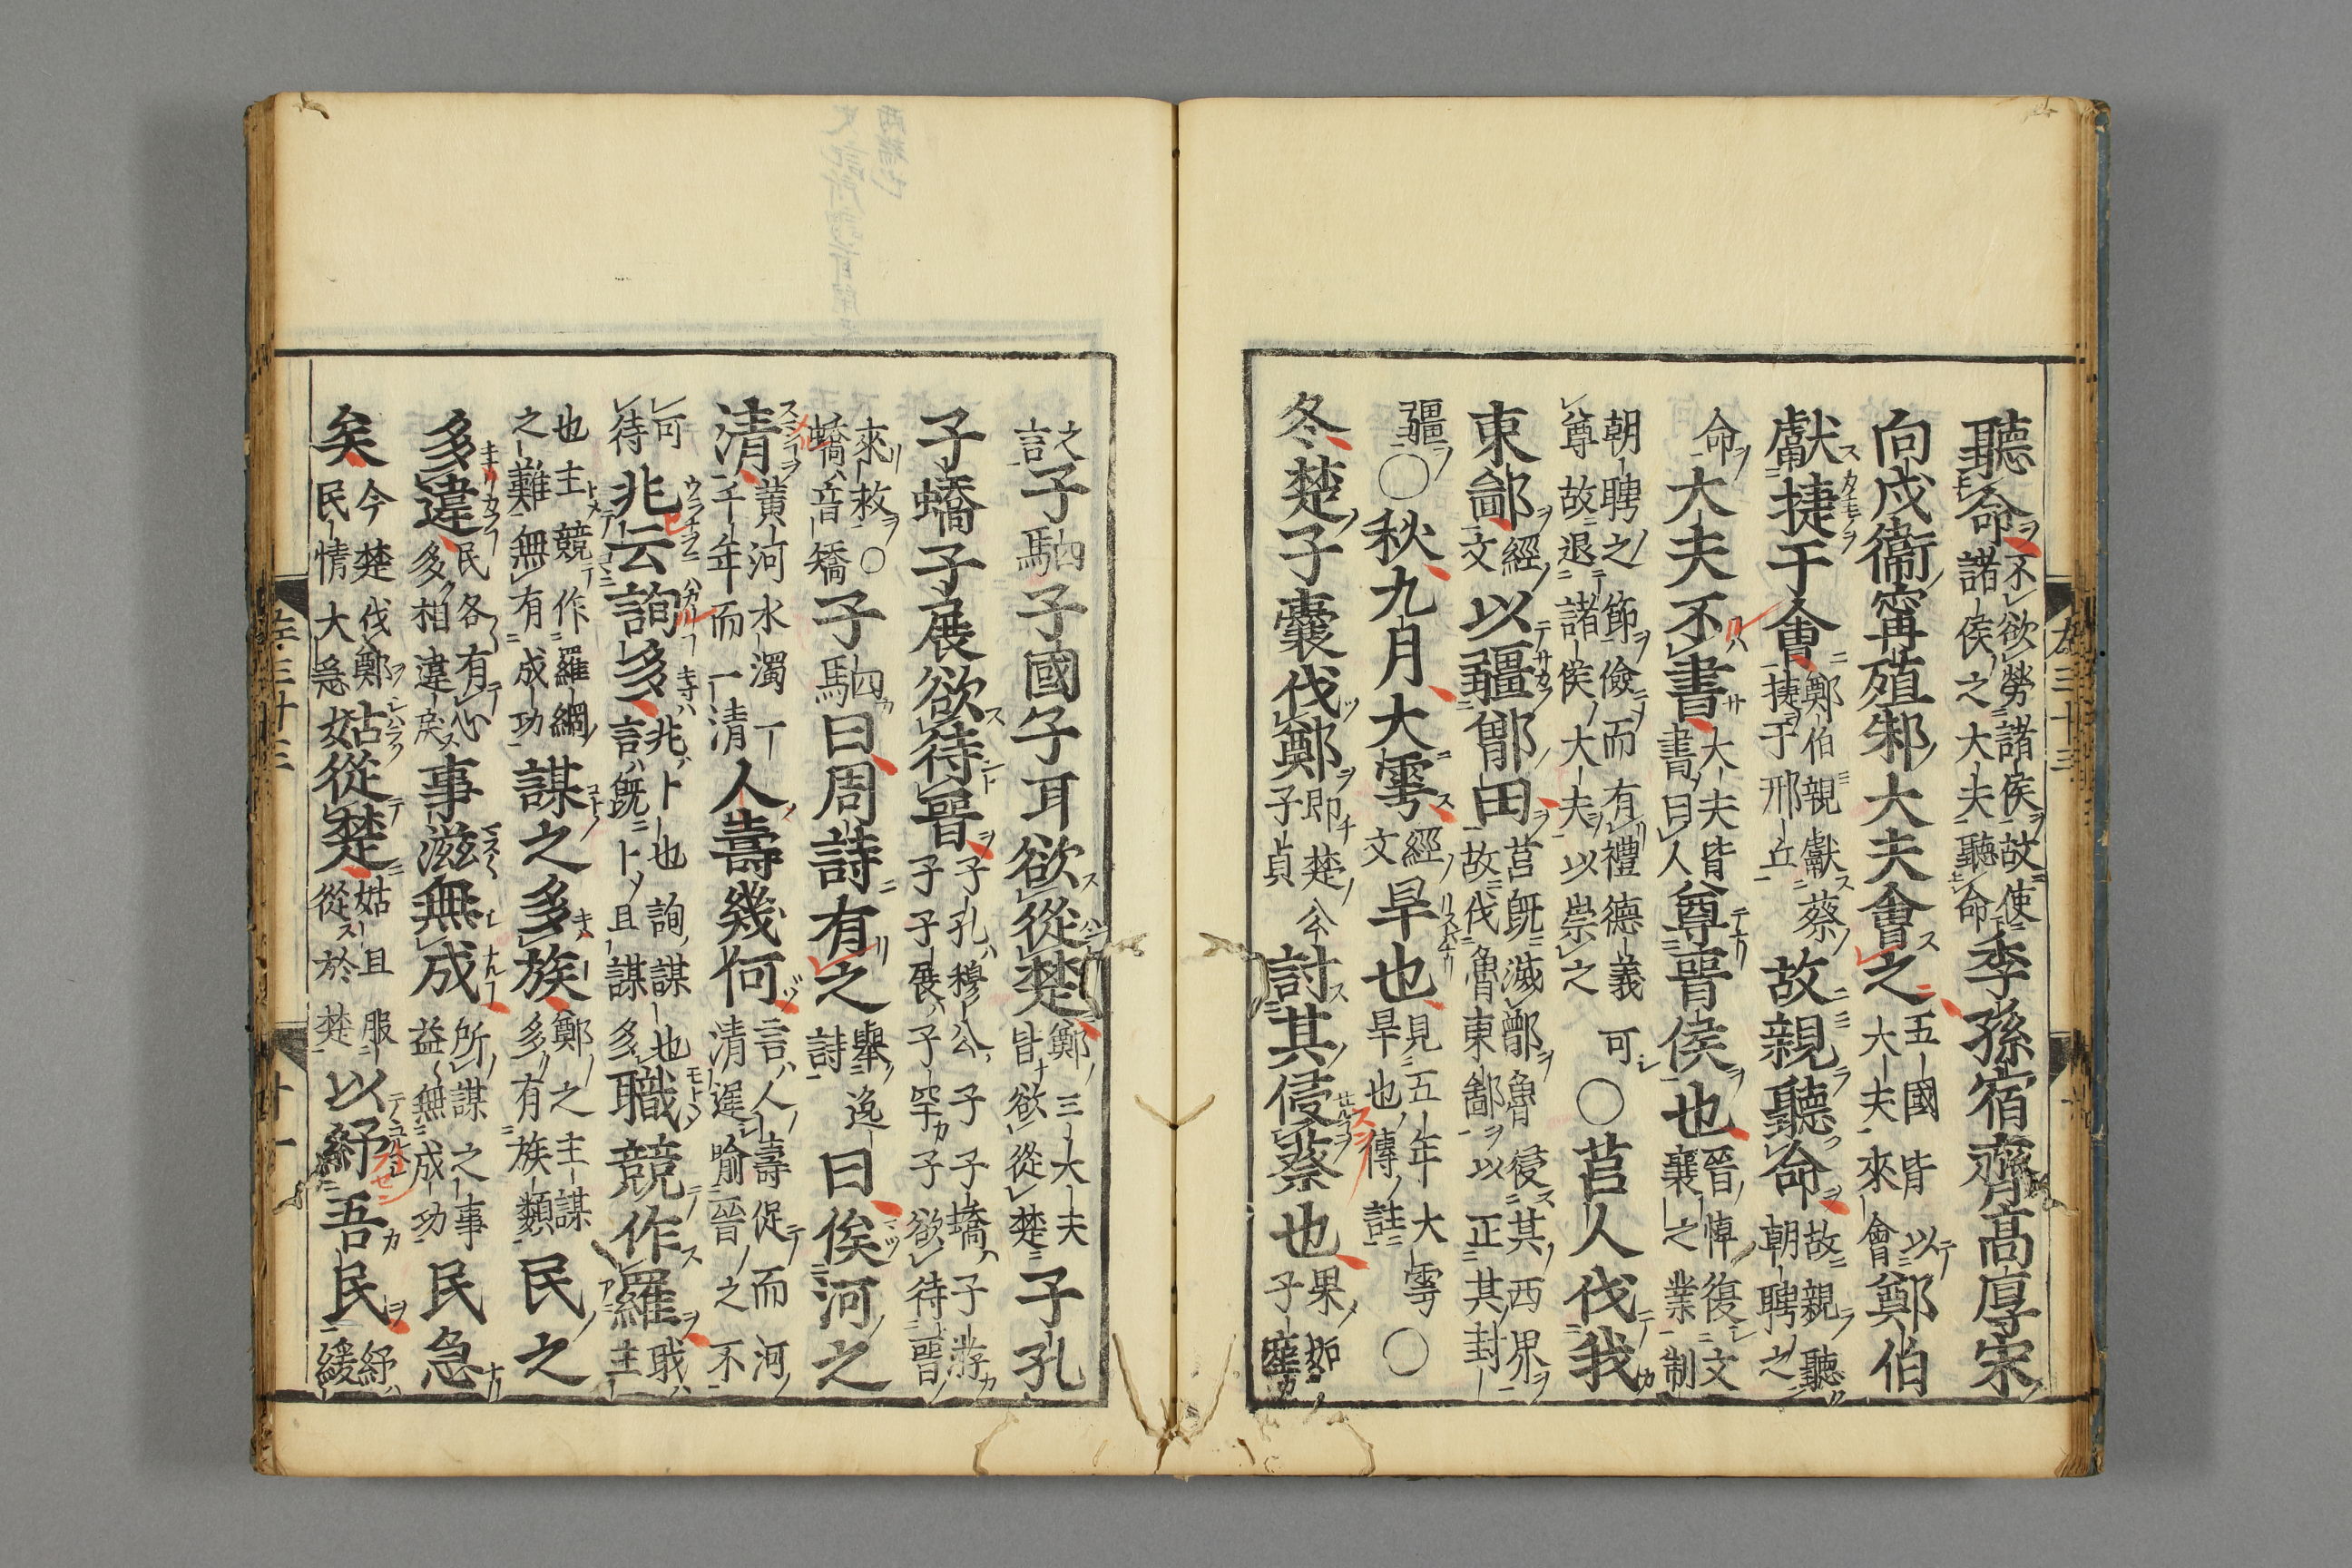 聽命不欲勞諸侯故使諸侯之大夫聽命季孫宿齊高厚宋
向戌衞甯殖邾大夫會之五國皆以大夫來會鄭伯
獻捷于會鄭伯親獻蔡捷于邢丘故親聽命故親聽朝聘之
命大夫不書大夫皆書曰人尊晉侯也晉悼復文襄之業制
朝聘之節儉而有禮德義可尊故退諸侯大夫以崇之○莒人伐我
東鄙經文以疆鄫田莒既滅鄫魯侵其西界故伐魯東鄙以正其封
疆○秋九月大雩經文旱也見五年大雩旱也傳註○
冬楚子囊伐鄭即楚公子貞討其侵蔡也果如子產
之言子駟子國子耳欲從楚鄭三大夫皆欲從楚子孔
子蟜子展欲待晉子孔穆公子子蟜子游子子展子罕子欲待晉
來救○蟜音矯子駟曰周詩有之舉逸詩曰俟河之
清黃河水濁千年而一清人壽幾何言人壽促而河清遲喻晉之不
可待兆云詢多兆卜也詢謀也言既卜且謀多職競作羅職主
也主競作羅網之難無有成功謀之多族鄭之主謀多有族類民之
多違民各有心多相違戾事滋無成所謀之事益無成功民急
矣今楚伐鄭民情大急姑從楚姑且服從於楚以紓吾民紓緩
左三十三
十一